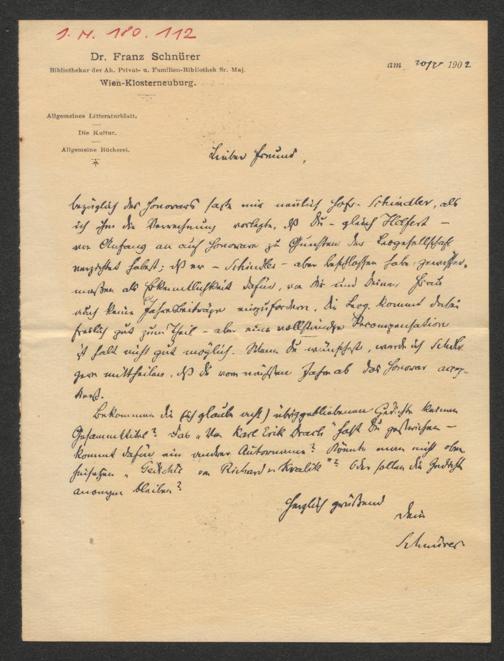 J. N. 180.112
Dr. Franz Schnürer
Bibliothekar der Ah. Privat- u. Familien-Bibliothek Sr. Maj.
Wien-Klosterneuburg.
am 1902
Allgemeines Litteraturblatt.
Die Kultur.
Allgemeine Bücherei.
Lieber Freund,
bezüglich des Honorars sagte mir neulich Hofr. Schindler, als
ich ihm die Verrechnung vorlegte, daß Du – gleich Helfert –
von Anfang an auf Honorare zu Gunsten der Leogesellschaft
verzichtet habest; daß er – Schindler – aber beschlossen habe, gewisser-
maßen als Erkenntlichkeit dafür, von Dir und Deiner Frau
auch keine Jahresbeiträge einzufordern. Die Leog. kommt dabei
freilich gut zum Theil – aber eine vollständige Recompensation
ist halt nicht gut möglich. Wenn Du wünschest, werde ich Schindler
gern mittheilen, daß Du vom nächsten Jahr ab das Honorar
Bekommen die (ich glaube acht) übriggebliebenen Gedichte keinen
Gesammttitel? Das „Von Karl Erik " hast Du gestrichen –
kommt dafür ein anderer Autorname? Könnte man nicht oben
hinsetzen „Gedichte von Richard v. Kralik"? Oder sollen die Gedichte
anonym bleiben?
Herzlich grüßend
Dein
Schnürer